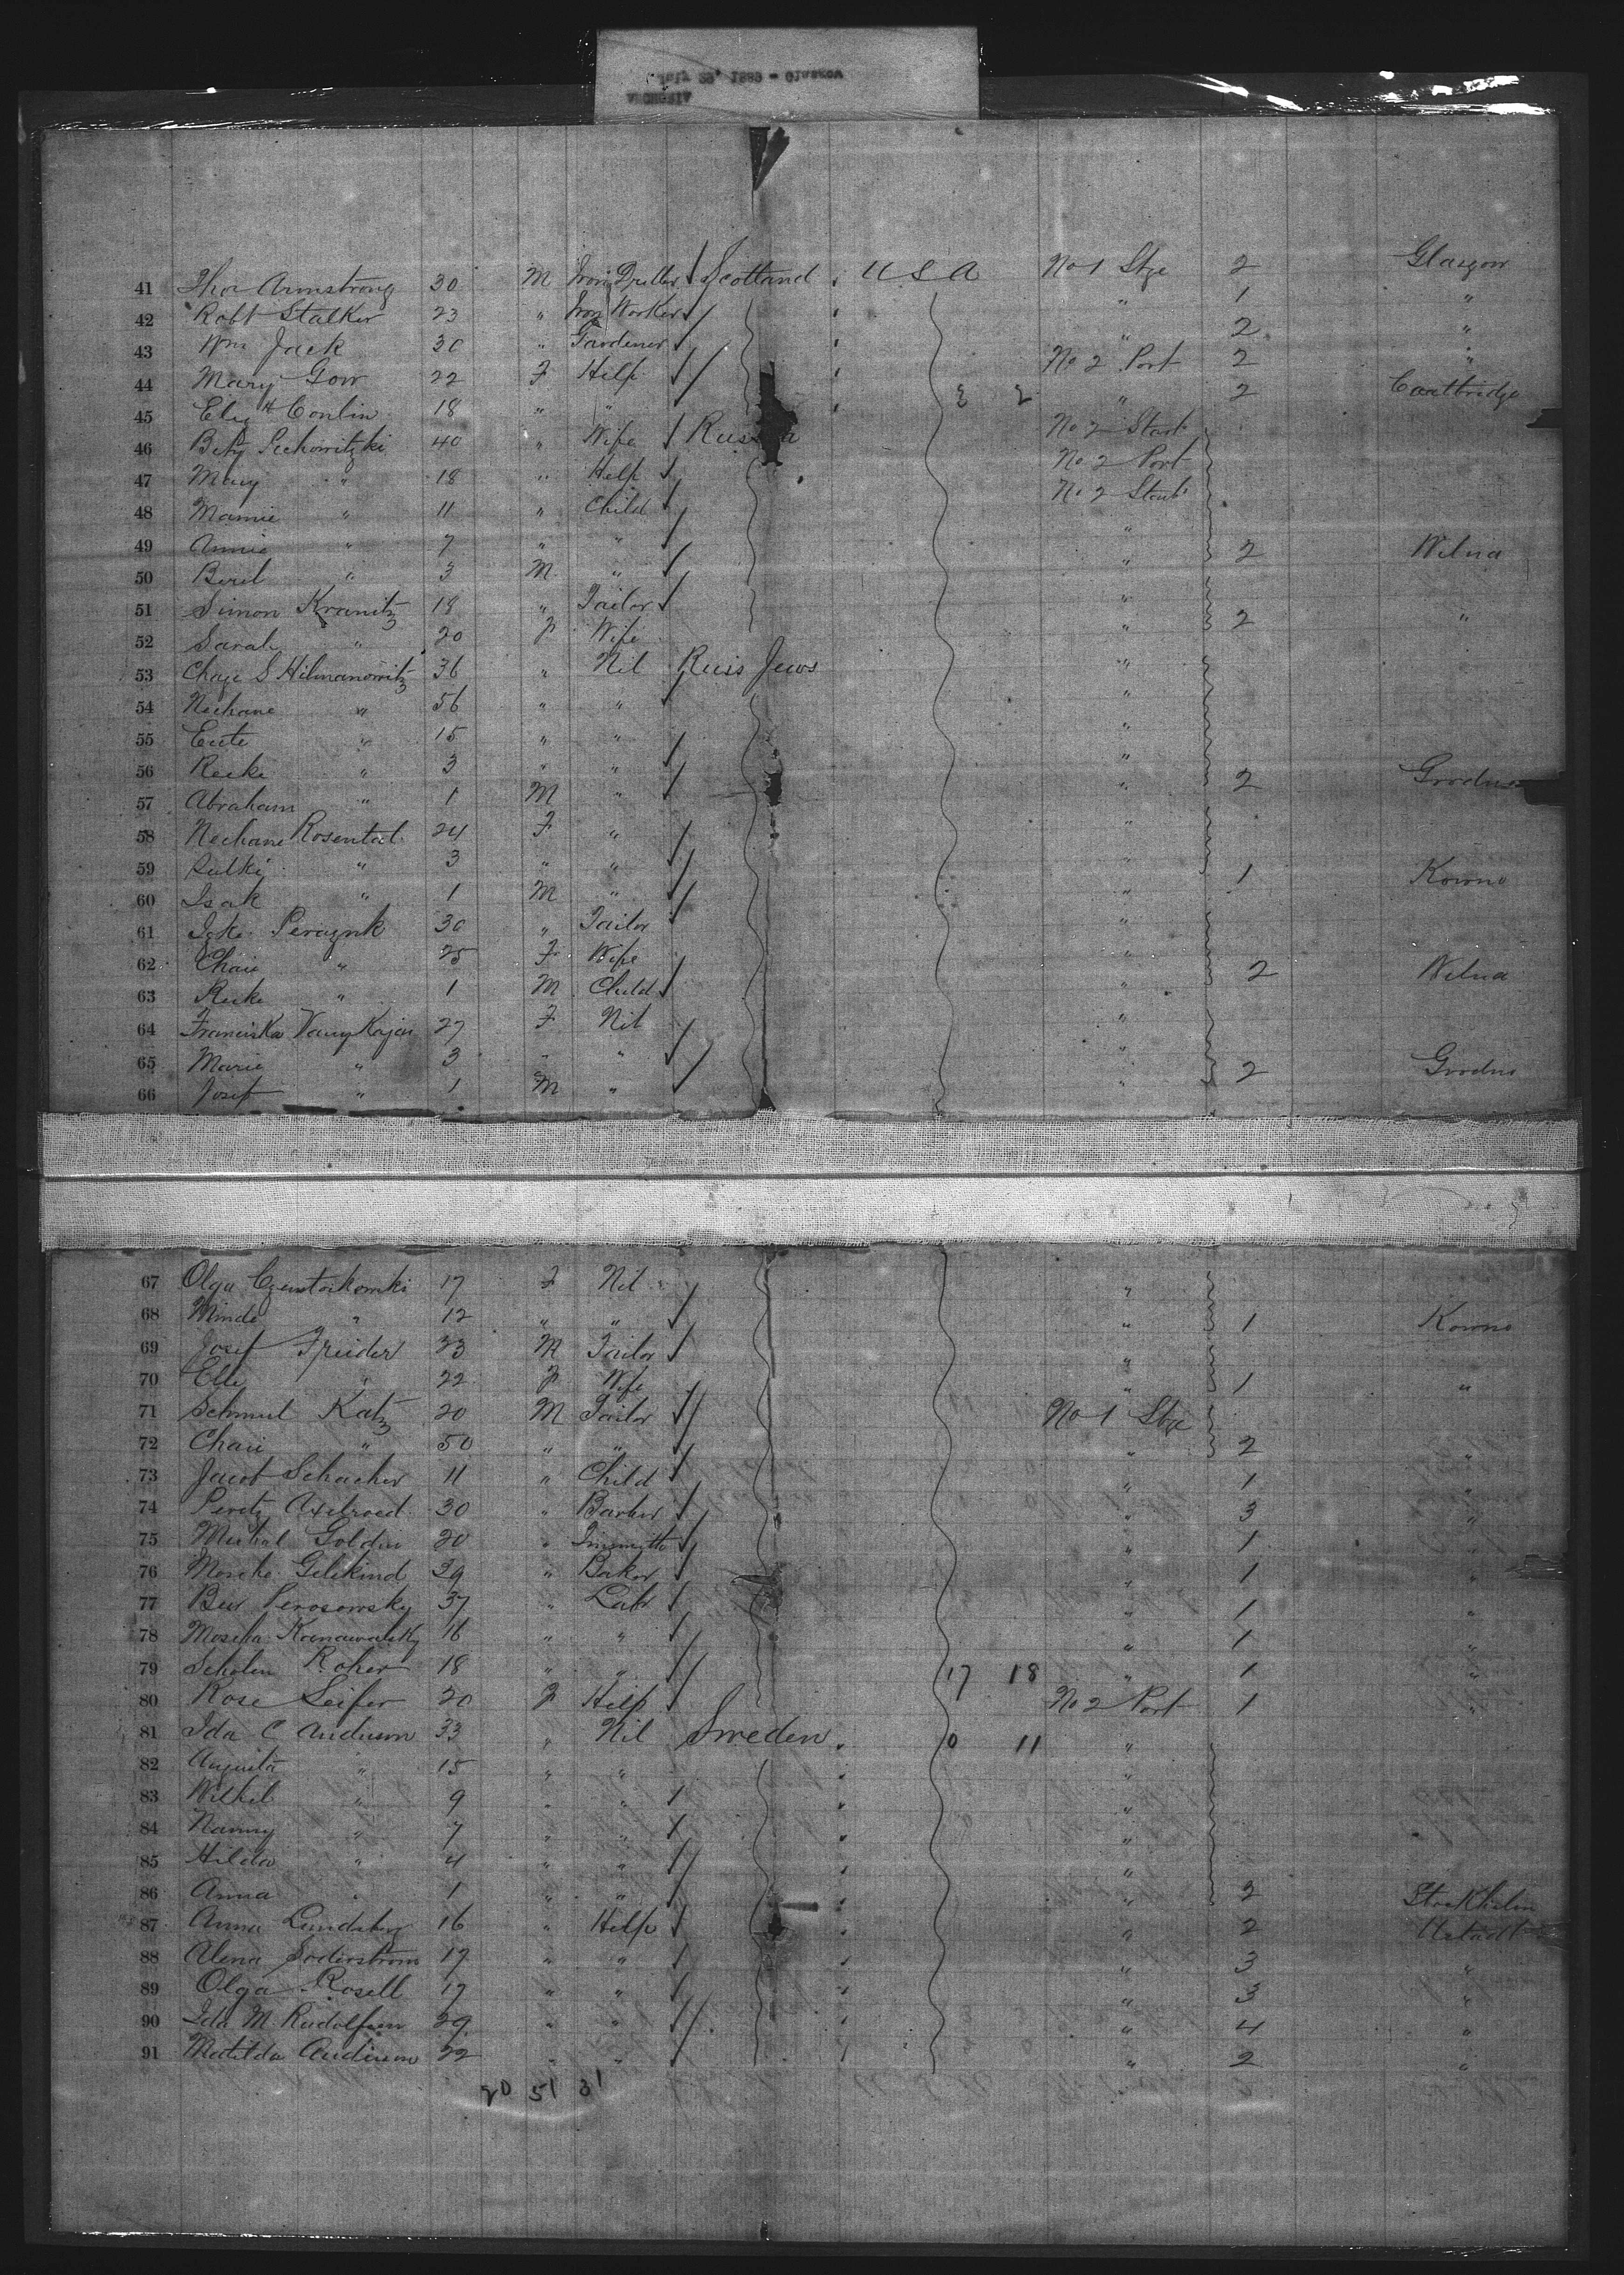 July 29, 1889 - Glasgow
ANCHORIA
41 Thos Armstrong 30 M Iron Driller Scotland " U S A No 1 Stge 2 Glasgow
42 Robt Stalker 23 " Iron Worker " " 1 "
43 Wm Jack 30 " Gardener " " 2 "
44 Mary Gow 22 F Help " No 2 Port 2 "
45 Eliz H Conlin 18 " " " 3 2 " 2 Coatbridge
46 40 " Wife Russia No 2 Starb
47 Mary " 18 " Help No 2 Port
48 Mamie " 11 " Child No 2 Starb
49 Annie " 7 " " "
50 Beril " 3 M " " 2 Wilna
51 Simon Kranitz 18 " Tailor "
52 Sarah " 20 F Wife " 2 "
53 Chaje S Hilmanowitz 36 " Nil Russ Jews "
54 Nechane " 56 " " "
55 " 15 " " "
56 Reeke " 3 " " "
57 Abraham " 1 M " " 2 Grodno
58 Nechane Rosental 24 F " "
59 " 3 " " "
60 Isak " 1 M " " 1 Kowno
61 30 " Tailor "
62 Chaie " 25 F Wife "
63 " 1 M Child " 2 Wilna
64 Franciska 27 F Nil "
65 Marie " 3 " " "
66 Josef " 1 M " " 2 Grodno
67 Olga 17 F Nil "
68 Minde " 12 " " " 1 Kowno
69 Josef 23 M Tailor "
70 Elle " 22 F Wife " 1 "
71 Schmul Katz 20 M Tailor No 1 Stge
72 Chaie " 50 " " " 2 "
73 Jacob Schacher 11 " Child " 1 "
74 Peretz Axelroed 30 " Barber " 3 "
75 Goldin 20 " " 1 "
76 Mosche Gelikind 39 " Baker " 1 "
77 Ber Perosowsky 37 " Labr " 1 "
78 16 " " " 1 "
79 Scholem Roher 18 " " 17 18 " 1 "
80 Rose Leifer 20 F Help No 2 Port 1 "
81 Ida C Anderson 33 " Nil Sweden " 0 11 "
82 Augusta " 15 " " " "
83 " 9 " " " "
84 Nanny " 7 " " " "
85 Hilda " 4 " " " "
86 Anna " 1 " " " " 2 Stockholm
87 Anna 16 " Help " " 2
88 Alena Soderstrom 17 " " " " 3 "
89 Olga Rosell 17 " " " " 3 "
90 Ida M 29 " " " " 4 "
91 Matilda Anderson 22 " " " " 2 "
20 51 31